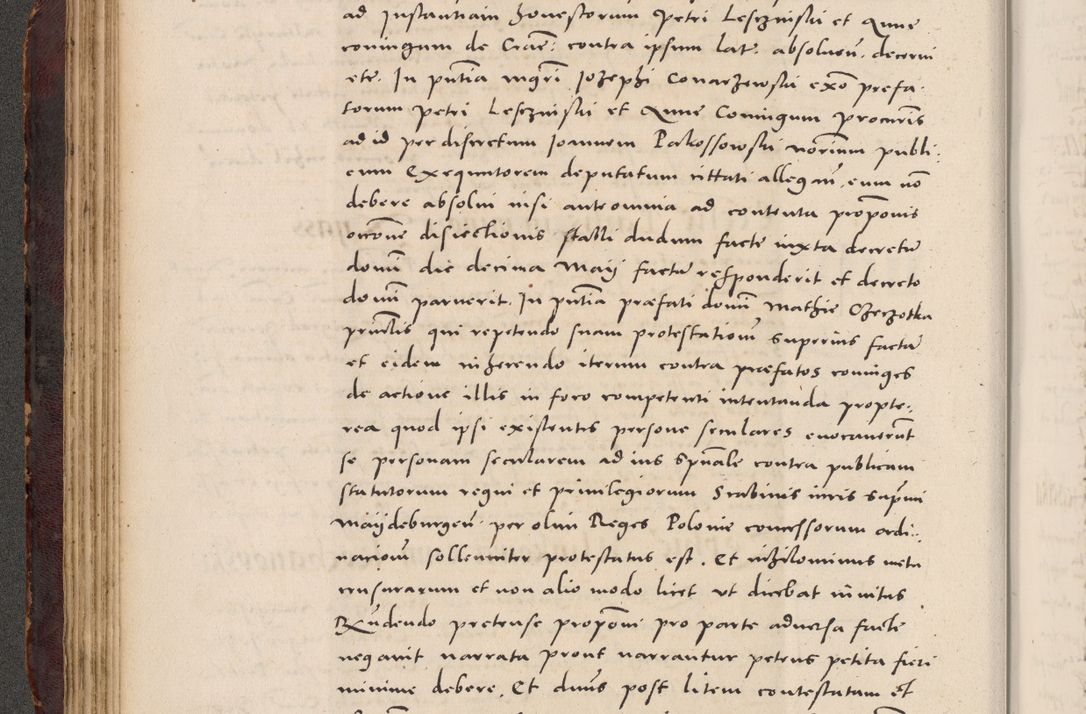 ad Instantiam honestorum Petri Lesczinski et Anne
coniugum de Crac: contra ipsum lat: absolueñ. decerni
etc. In pñtia mgri Jozephi Conarzewski exõ prefa-
torum Petri Lesczinski et Anne Coniugum procuris
ad id per discretum Joannem Pakossowski norium publi-
cum Exequutorem deputatum cittati allegañ. eum nõ
debere absolui nisi ante omnia ad contenta propõnis
oĩcone disiectionis stalli dudum facte iuxta decretũ
domĩ die decima Maij factũ responderit et decreto
domĩ paruerit. In pñtia præfati domĩ Mathie Czeczotka
prĩclis qui repetendo suam protestationẽ superius factã
et eidem inherendo iterum contra præfatos coniuges
de actione illis in foro competenti intentanda propte-
rea quod ipsi existentes persone seculares euocauerũt
se personam secularem ad ius spũale contra publicam
statutorum regni et priuilegiorum Scabinis iuris supmi
Maijdeburgeñ. per olim Reges Polonie concessorum ordi-
nationẽ sollemniter protestatus est. Et nihilominus metu
censurarum et non alio modo licet vt dicebat inuitus
Rñdendo pretense propõni pro parte aduersa facte
negauit narrata prout narrantur petens petita fieri
minime debere. Et dnus post litem contestatam et